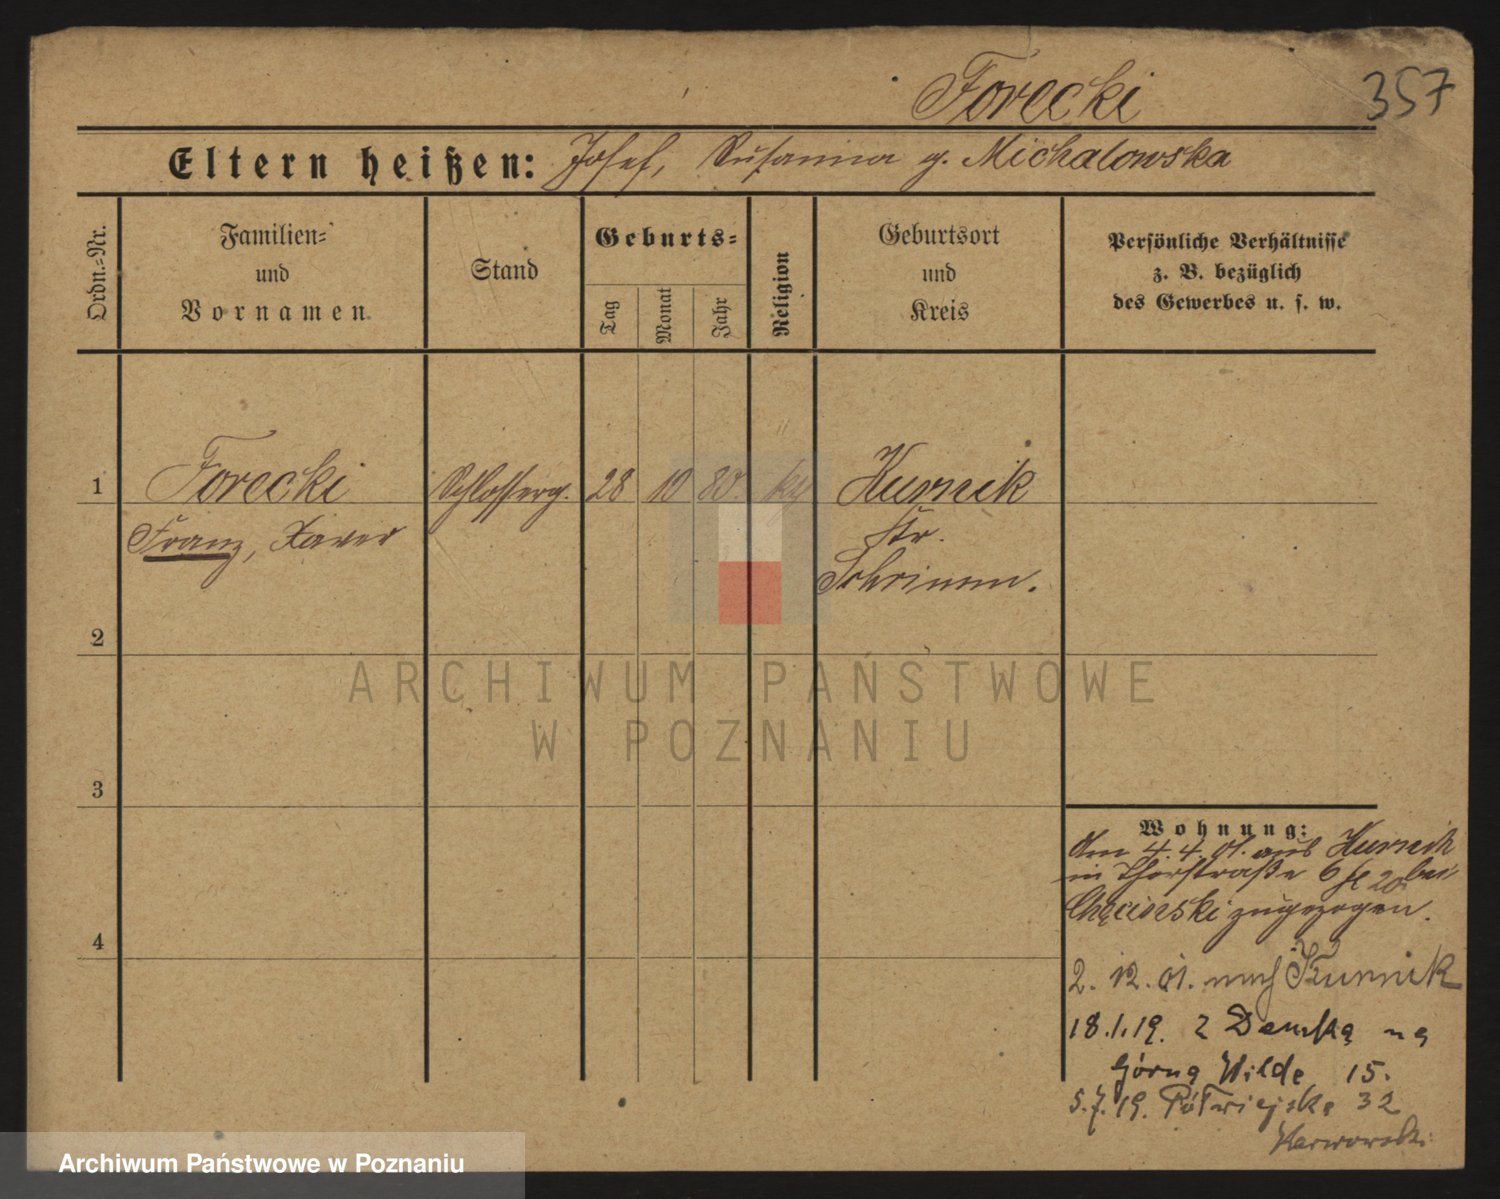 357
Forecki
Eltern heißen: Josef, Susanna g. Michalowska
Ordn.-Nr.
Familien-
und
Vornamen
Stand
Geburts-
Tag
Monat
Jahr
Religion
Geburtsort
und
Kreis
Persönliche Verhältnisse
z. B. bezüglich
des Gewerbes u. s. w.
1 Forecki Schlosserg. 28 10 80. kth Kurnik
Franz, Xaver Kr.
Schrimm.
2
3
4
Wohnung:
den 4. 4. 01. aus Kurnik
in Thorstraße 6 bei
zugezogen.
2. 12. 01. nach Kurnik
18.1.19. z na
Górną Wilde 15.
5.7.19. Półwiejska 32
Karworski
ARCHIWUM PAŃSTWOWE
W POZNANIU
Archiwum Państwowe w Poznaniu